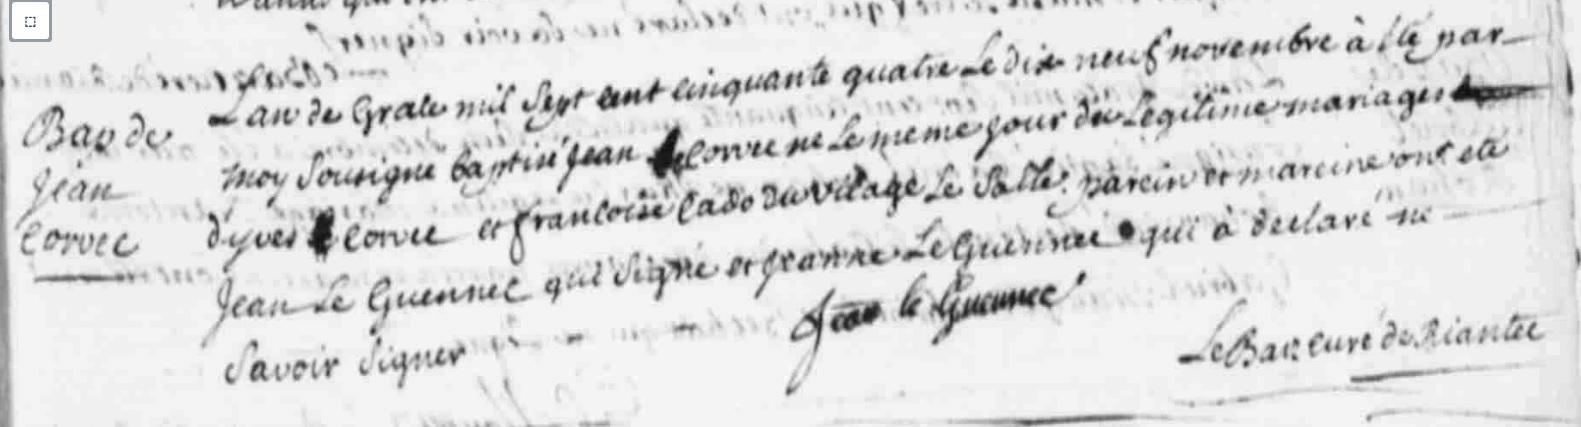 Bap de
Jean
Corvec
L'an de Grace mil Sept cent cinquante quatre Le dix neuf novembre à été par
moy Sousigné baptisé Jean Corvec né Le meme jour du Legitime mariage
d'yves Corvec et francoise Cado du vilage Le Salle: parein et mareine ont eté
Jean Le Guennec qui Signe et Jeanne Le Guennec qui à declaré ne
Savoir Signer
Jean le Guennec
Le Bar curé de Riantec